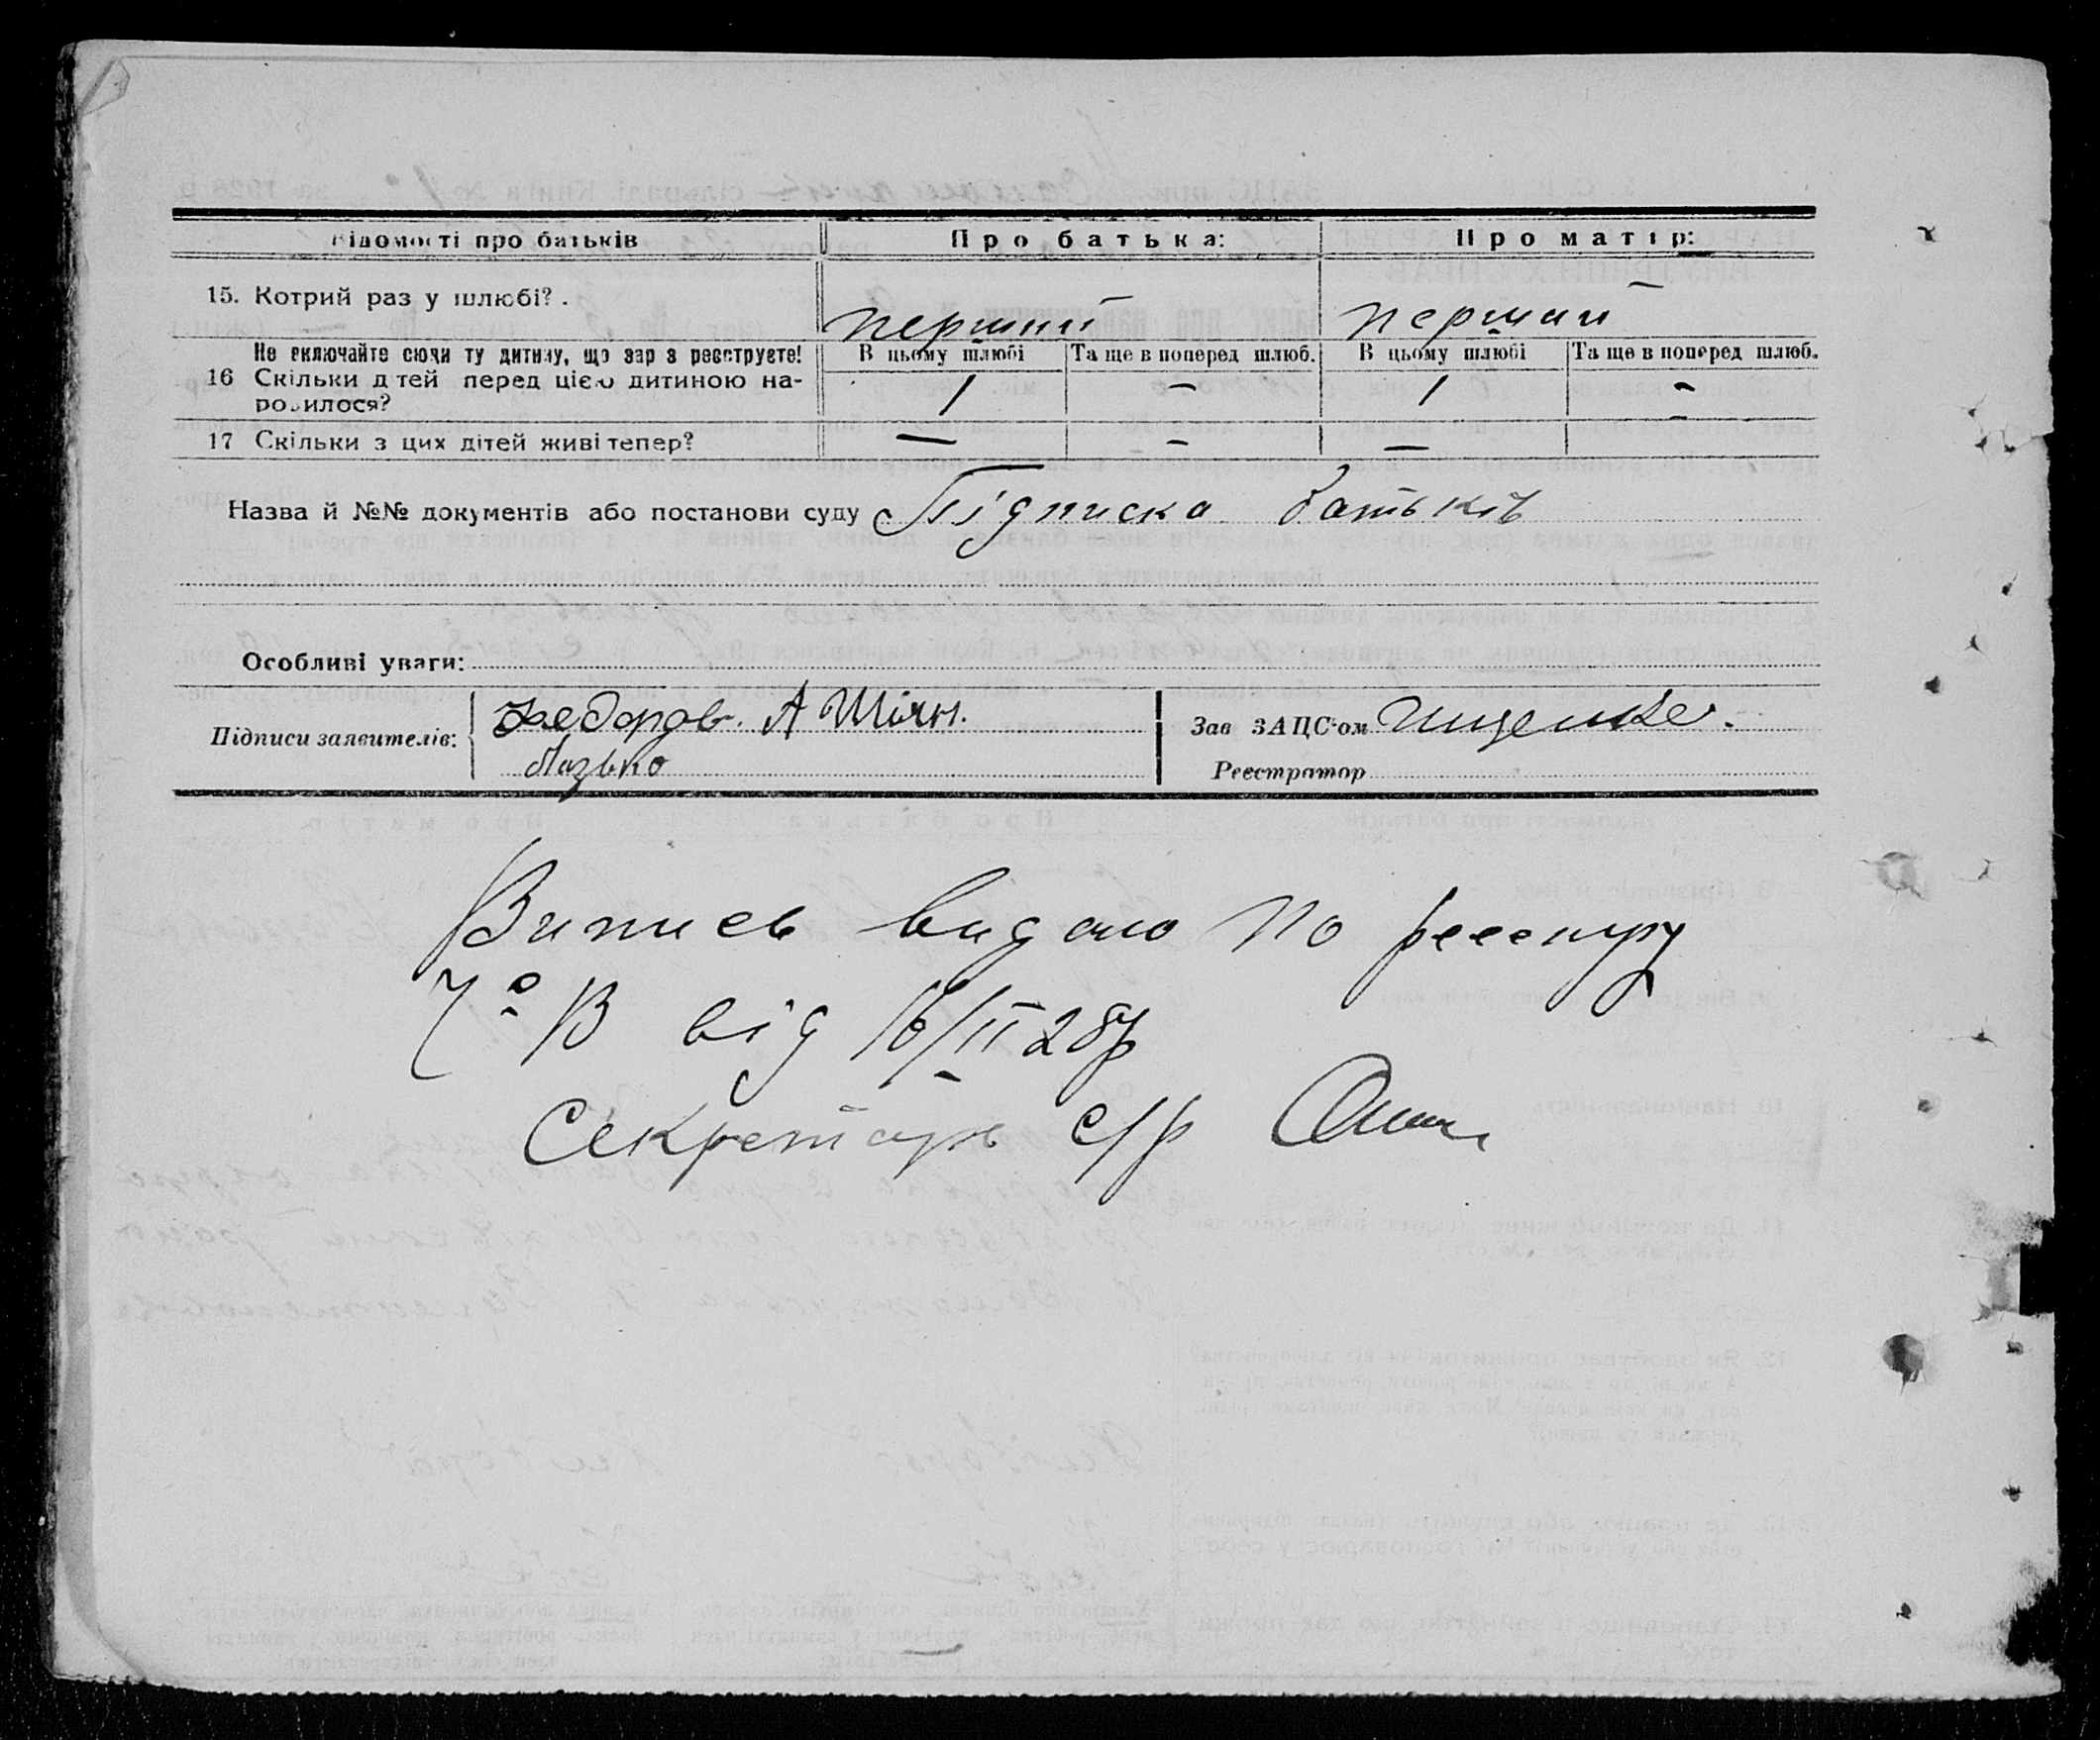 Відомості про батьків Про батька: Про матір:
15. Котрий раз у шлюбі? . перший перший
Не включайте сюди ту дитину, що зараз реєструєте! В цьому шлюбі Та ще в поперед шлюб. В цьому шлюбі Та ще в поперед шлюб.
16 Скільки дітей перед цією дитиною на- 1 – 1 –
родилося?
17 Скільки з цих дітей живі тепер? — – — –
Назва й №№ документів або постанови суду Підписка батьків
Особливі уваги:
Підписи заявителів: Федоров. А Шіян. Зав ЗАЦС‘ом Ищенко.
Лазько Реєстратор
Випись видано по реєстру
№ 13 від 16/II 28р
Секретарь с/р